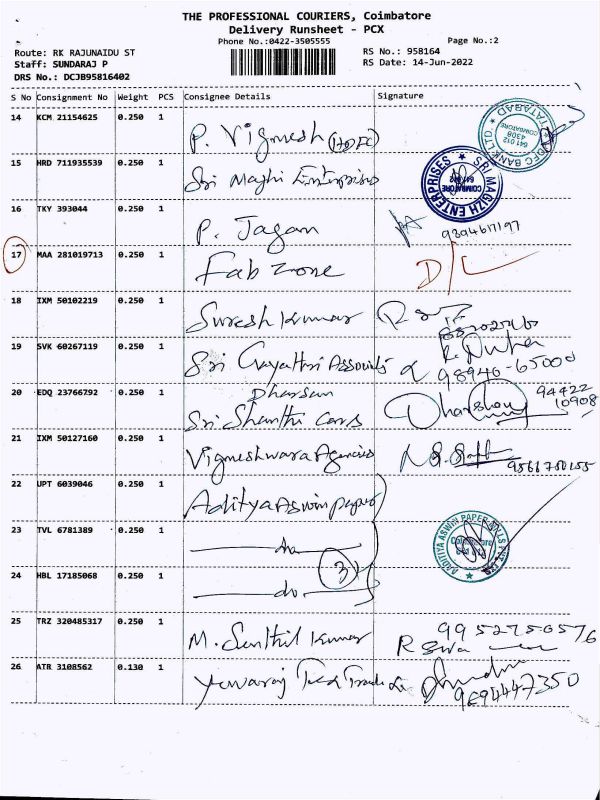 THE PROFESSIONAL COURIERS, Coimbatore
Delivery Runsheet - PCX
Phone No.:0422-3505555 Page No.:2
Route: RK RAJUNAIDU ST RS No.: 958164
Staff: SUNDARAJ P RS Date: 14-Jun-2022
DRS No.: DCJB95816402
S No Consignment No Weight PCS Consignee Details Signature
14 KCM 21154625 0.250 1 P. Vigmesh (HDFC)
HDFC BANK LTD TATABAD 641 012 4308 COIMBATORE
15 HRD 711935539 0.250 1 Sri Maghi Enterprises
SRI MAGIZH ENTERPRISES COIMBATORE
16 TKY 393044 0.250 1 P. Jagan
17 MAA 281019713 0.250 1 Fab Zone D/L
18 IXM 50102219 0.250 1 Suresh Kumar
19 SVK 60267119 0.250 1 Sri Gayathri Associats
98946-65000
20 EDQ 23766792 0.250 1 Dharsan
Sri Shanthi Cars Dharshan 94422
10908
21 IXM 50127160 0.250 1 Vigneshwara Agencies
22 UPT 6039046 0.250 1 Aditya Aswin Papers
ADITIYA ASWIN PAPER MILLS PVT LTD
23 TVL 6781389 0.250 1 do
3
24 HBL 17185068 0.250 1 do
25 TRZ 320485317 0.250 1 M. Senthil Kumar 9952750576
26 ATR 3108562 0.130 1 Yuvaraj
9894447350